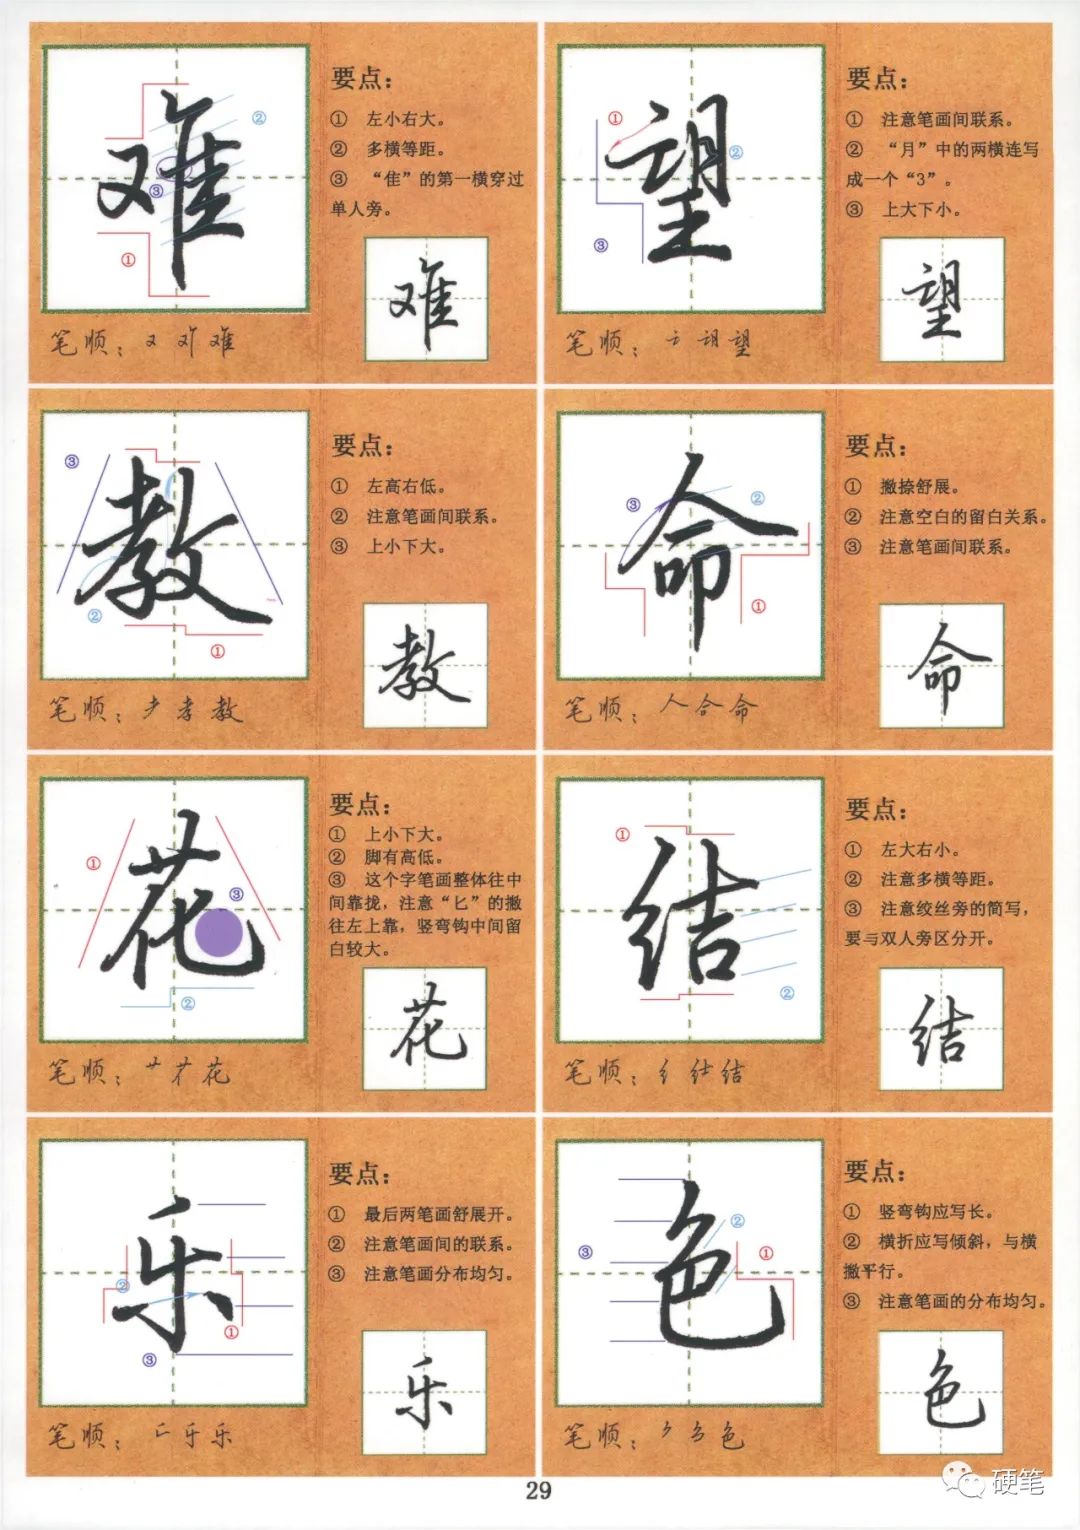 难
②
③
①
要点：
① 左小右大。
② 多横等距。
③ “隹”的第一横穿过
单人旁。
难
笔顺：又 难
望
①
②
③
要点：
① 注意笔画间联系。
② “月”中的两横连写
成一个“3”。
③ 上大下小。
望
笔顺：亠 望
教
③
②
①
要点：
① 左高右低。
② 注意笔画间联系。
③ 上小下大。
教
笔顺：耂 孝 教
命
③
②
①
要点：
① 撇捺舒展。
② 注意空白的留白关系。
③ 注意笔画间联系。
命
笔顺：人 合 命
花
①
③
②
要点：
① 上小下大。
② 脚有高低。
③ 这个字笔画整体往中
间靠拢，注意“匕”的撇
往左上靠，竖弯钩中间留
白较大。
花
笔顺：艹 花
结
①
②
要点：
① 左大右小。
② 注意多横等距。
③ 注意绞丝旁的简写，
要与双人旁区分开。
结
笔顺：纟 结
乐
②
①
③
要点：
① 最后两笔画舒展开。
② 注意笔画间的联系。
③ 注意笔画分布均匀。
乐
笔顺：乐
色
②
③
①
要点：
① 竖弯钩应写长。
② 横折应写倾斜，与横
撇平行。
③ 注意笔画的分布均匀。
色
笔顺：色
29
硬笔